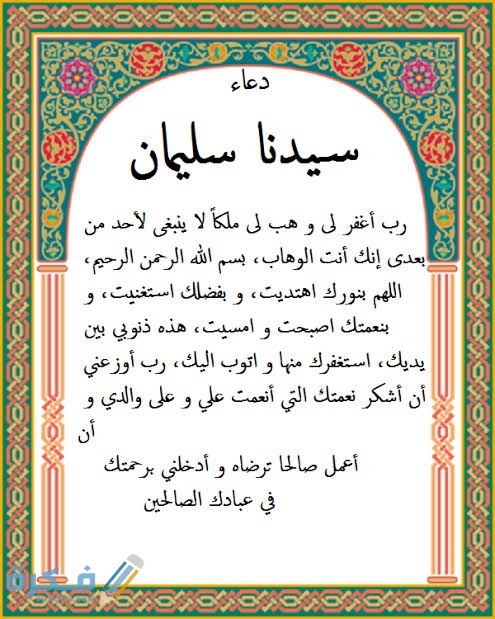 دعاء
سيدنا سليمان
رب أغفر لى و هب لى ملكاً لا ينبغى لأحد من
بعدى إنك أنت الوهاب، بسم الله الرحمن الرحيم،
اللهم بنورك اهتديت، و بفضلك استغنيت، و
بنعمتك اصبحت و امسيت، هذه ذنوبي بين
يديك، استغفرك منها و اتوب اليك، رب أوزعني
أن أشكر نعمتك التي أنعمت علي و على والدي و
أن
أعمل صالحا ترضاه و أدخلني برحمتك
في عبادك الصالحين
فكرة